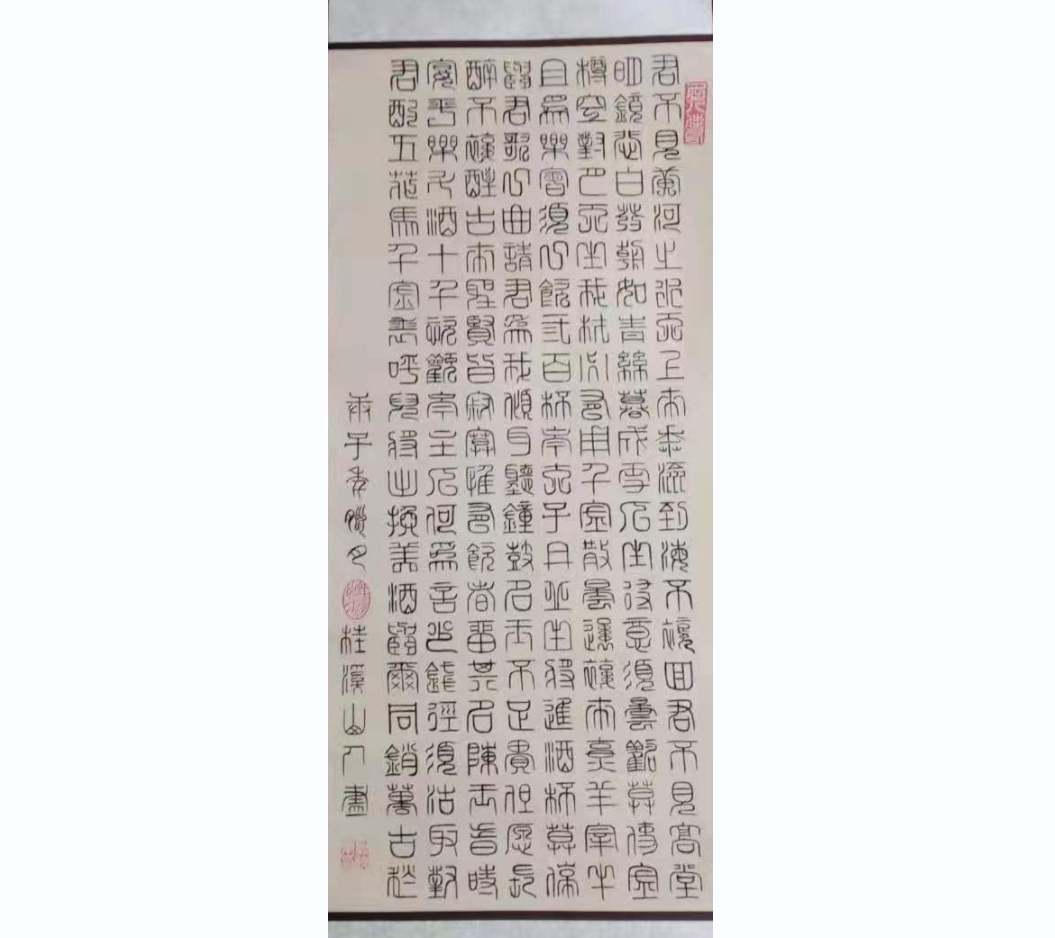 君不見黃河之水天上來奔流到海不復回君不見高堂
明鏡悲白發朝如青絲暮成雪人生得意須盡歡莫使金
樽空對月天生我材必有用千金散盡還復來烹羊宰牛
且爲樂會須一飲三百杯岑夫子丹丘生將進酒杯莫停
與君歌一曲請君爲我傾耳聽鐘鼓名玉不足貴但愿長
醉不復醒古來聖賢皆寂寞惟有飲者留其名陳王昔時
宴平樂斗酒十千恣歡主人何爲言少錢徑須沽取對
君酌五花馬千金裘呼兒將出換美酒與爾同銷萬古愁
庚子年臘月桂溪山人書